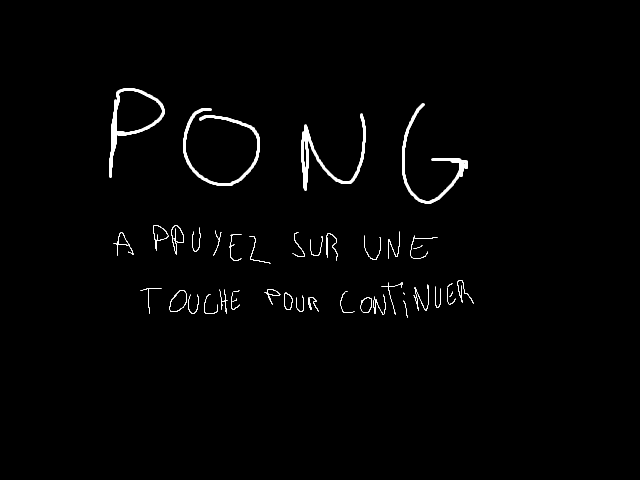 PONG
APPUYEZ SUR UNE
TOUCHE POUR CONTINUER